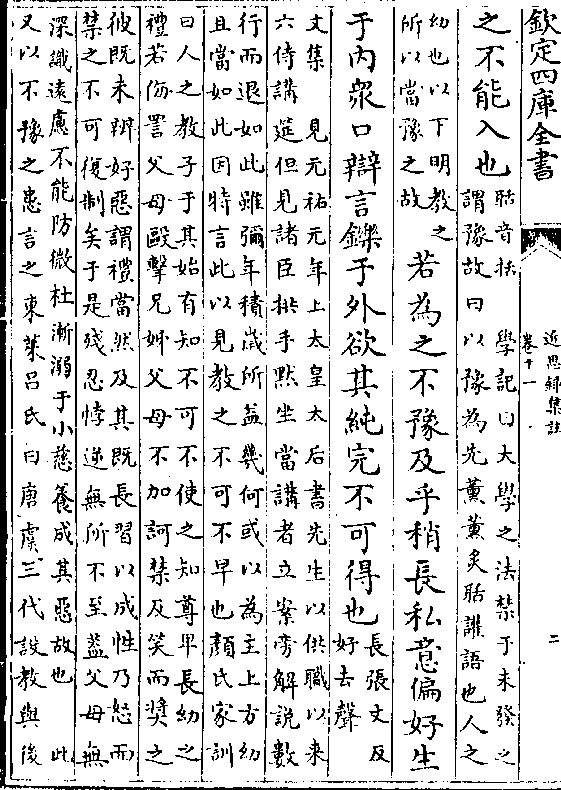 欽定四庫全書
近思録集註
卷十一
二
之不能入也
聒音括 學記曰大學之法禁于未發之
謂豫故曰以豫為先薰薰炙聒讙語也人之
幼也以下明教之
所以當豫之故
若為之不豫及乎稍長私意偏好生
于内衆口辯言鑠于外欲其純完不可得也
長張丈反
好去聲
文集 見元祐元年上太皇太后書先生以供職以来
六侍講筵但見諸臣拱手黙坐當講者立案旁解說數
行而退如此雖彌年積歳所益幾何或以為主上方幼
且當如此因特言此以見教之不可不早也顔氏家訓
曰人之教子于其始有知不可不使之知尊卑長幼之
禮若侮詈父母毆擊兄姊父母不加訶禁反笑而奬之
彼既未辨好惡謂禮當然及其既長習以成性乃怒而
禁之不可復制矣于是殘忍悖逆無所不至葢父母無
深識遠慮不能防微杜漸溺于小慈養成其惡故也 此
又以不豫之患言之東萊吕氏曰唐虞三代設教與後